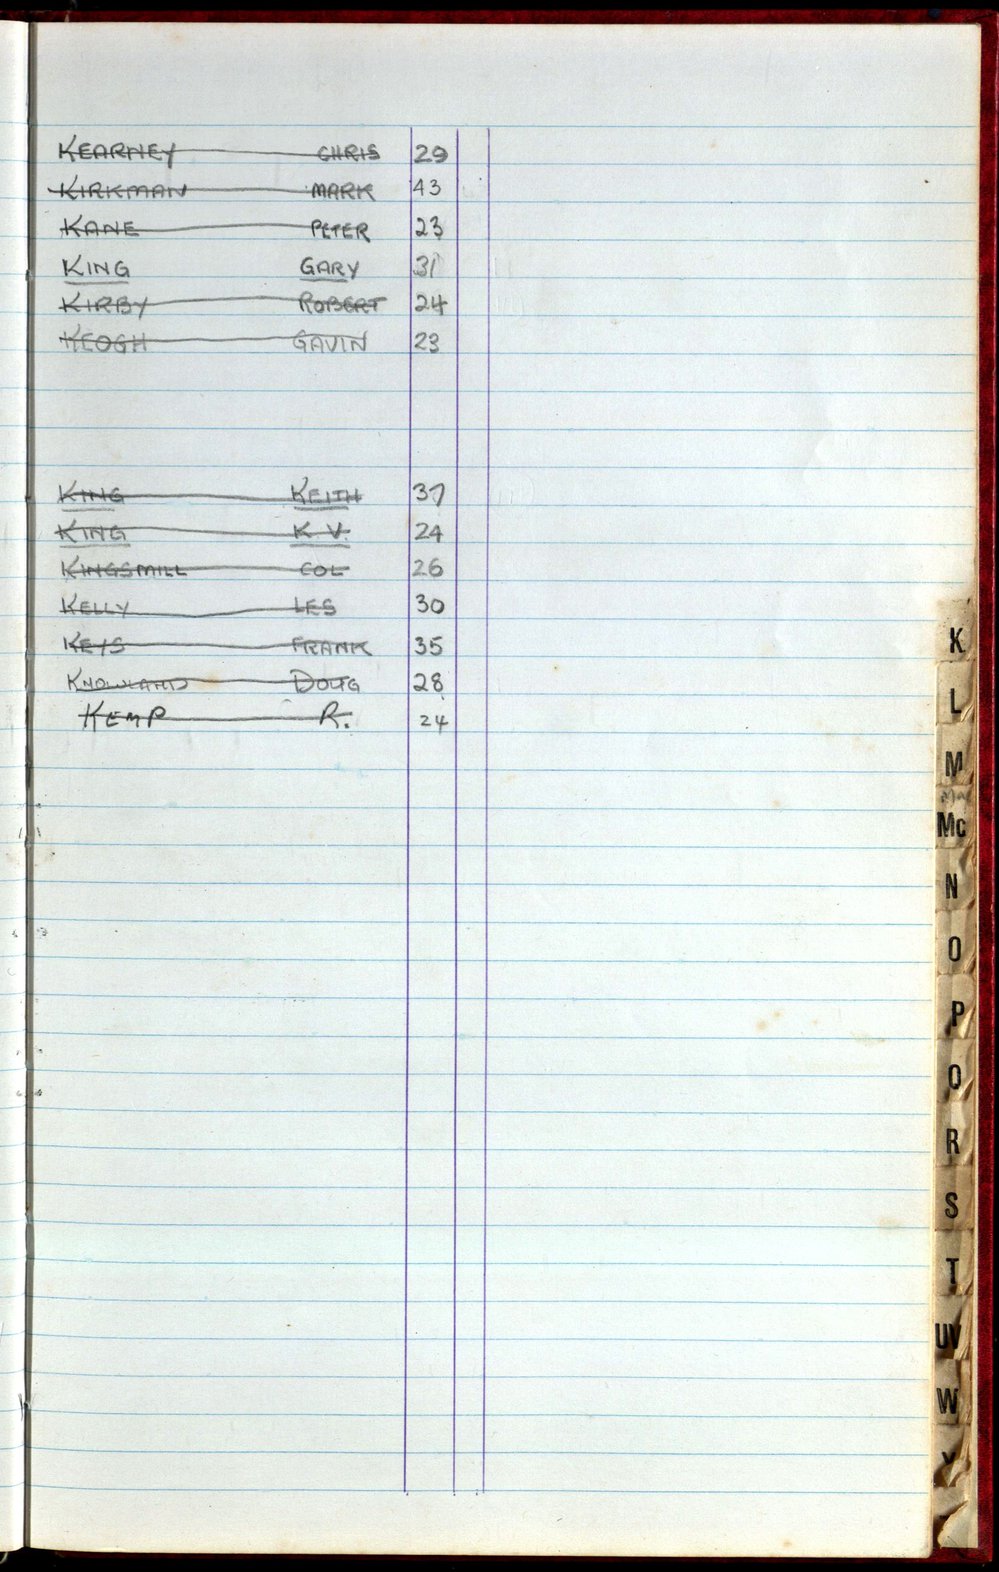 KEARNEY CHRIS 29
KIRKMAN MARK 43
KANE PETER 23
KING GARY 31
KIRBY ROBERT 24
KEOGH GAVIN 23
KING KEITH 37
KING K V. 24
KINGSMILL COL 26
KELLY LES 30
KEYS FRANK 35
KNOWLAND DOUG 28
KEMP R. 24
K
L
M
Mac
Mc
N
O
P
Q
R
S
T
UV
W
Y